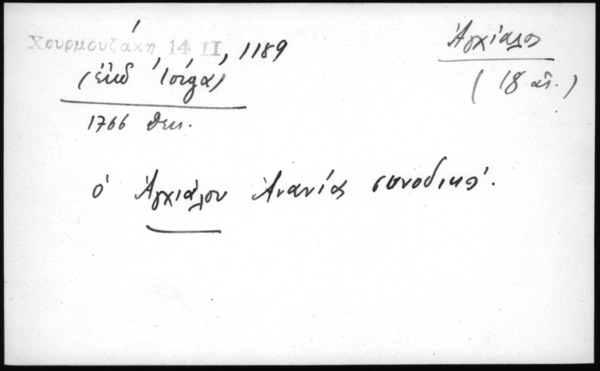 Χουρμουζάκη 14 II, 1189
Ἀγχίαλος
(ἔκδ Ἰόργα)
(18 αἰ.)
1766 Δεκ.
ὁ Ἀγχιάλου Ἀνανίας συνοδικός.